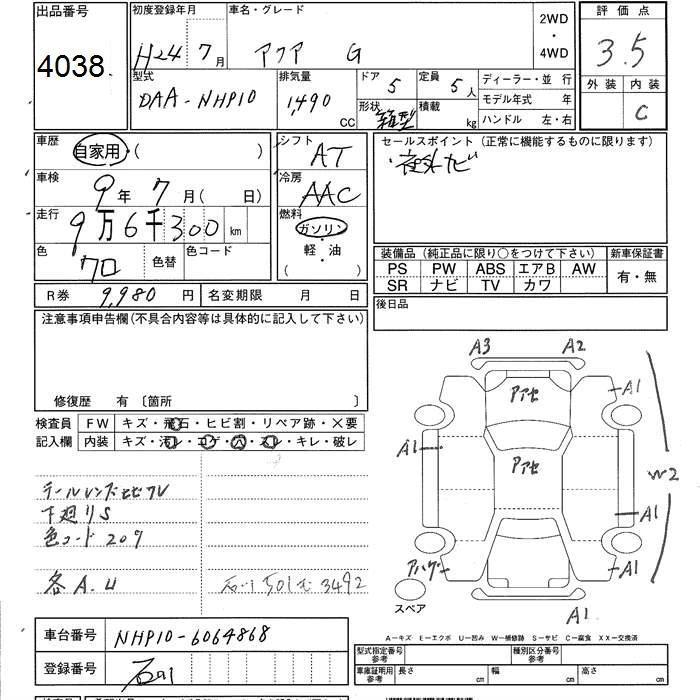 出品番号 初度登録年月 車名・グレード 2WD ・ 4WD 評価点
4038 H24年 7月 アクア G 3.5
型式 DAA-NHP10 排気量 1,490 CC ドア 5 定員 5人 ディーラー・並行 外装 内装 C
形状 箱型 積載 kg モデル年式 年
ハンドル 左・右
車歴 自家用・( ) シフト AT セールスポイント (正常に機能するものに限ります)
車検 9年 7月 ( 日) 冷房 AAC ・社外ナビ
走行 9万6千300 km 燃料 ガソリン ・ 軽・油 ( )
色 クロ 色替 色コード
装備品 (純正品に限り○をつけて下さい) 新車保証書
PS PW ABS エアB AW 有・無
SR ナビ TV カワ
R券 9,980 円 名変期限 月 日 後日品
注意事項申告欄(不具合内容等は具体的に記入して下さい)
修復歴 有 〔箇所 〕
検査員 FW キズ・飛石・ヒビ割・リペア跡・×要
記入欄 内装 キズ・汚レ・コゲ・穴・スレ・キレ・破レ
テールレンズヒビワレ
下廻りS
色コード 209
各A.U
A3 A2
アアセ
A1
A1
アアセ
W2
A1
アハゲ A1
スペア
A1
A―キズ E―エクボ U―凹み W―補修跡 S―サビ C―腐食 XX―交換済
車台番号 NHP10-6064868
登録番号 石川
型式指定番号 参考 種別区分番号 参考
車庫証明用 参考 長さ cm 幅 cm 高さ cm